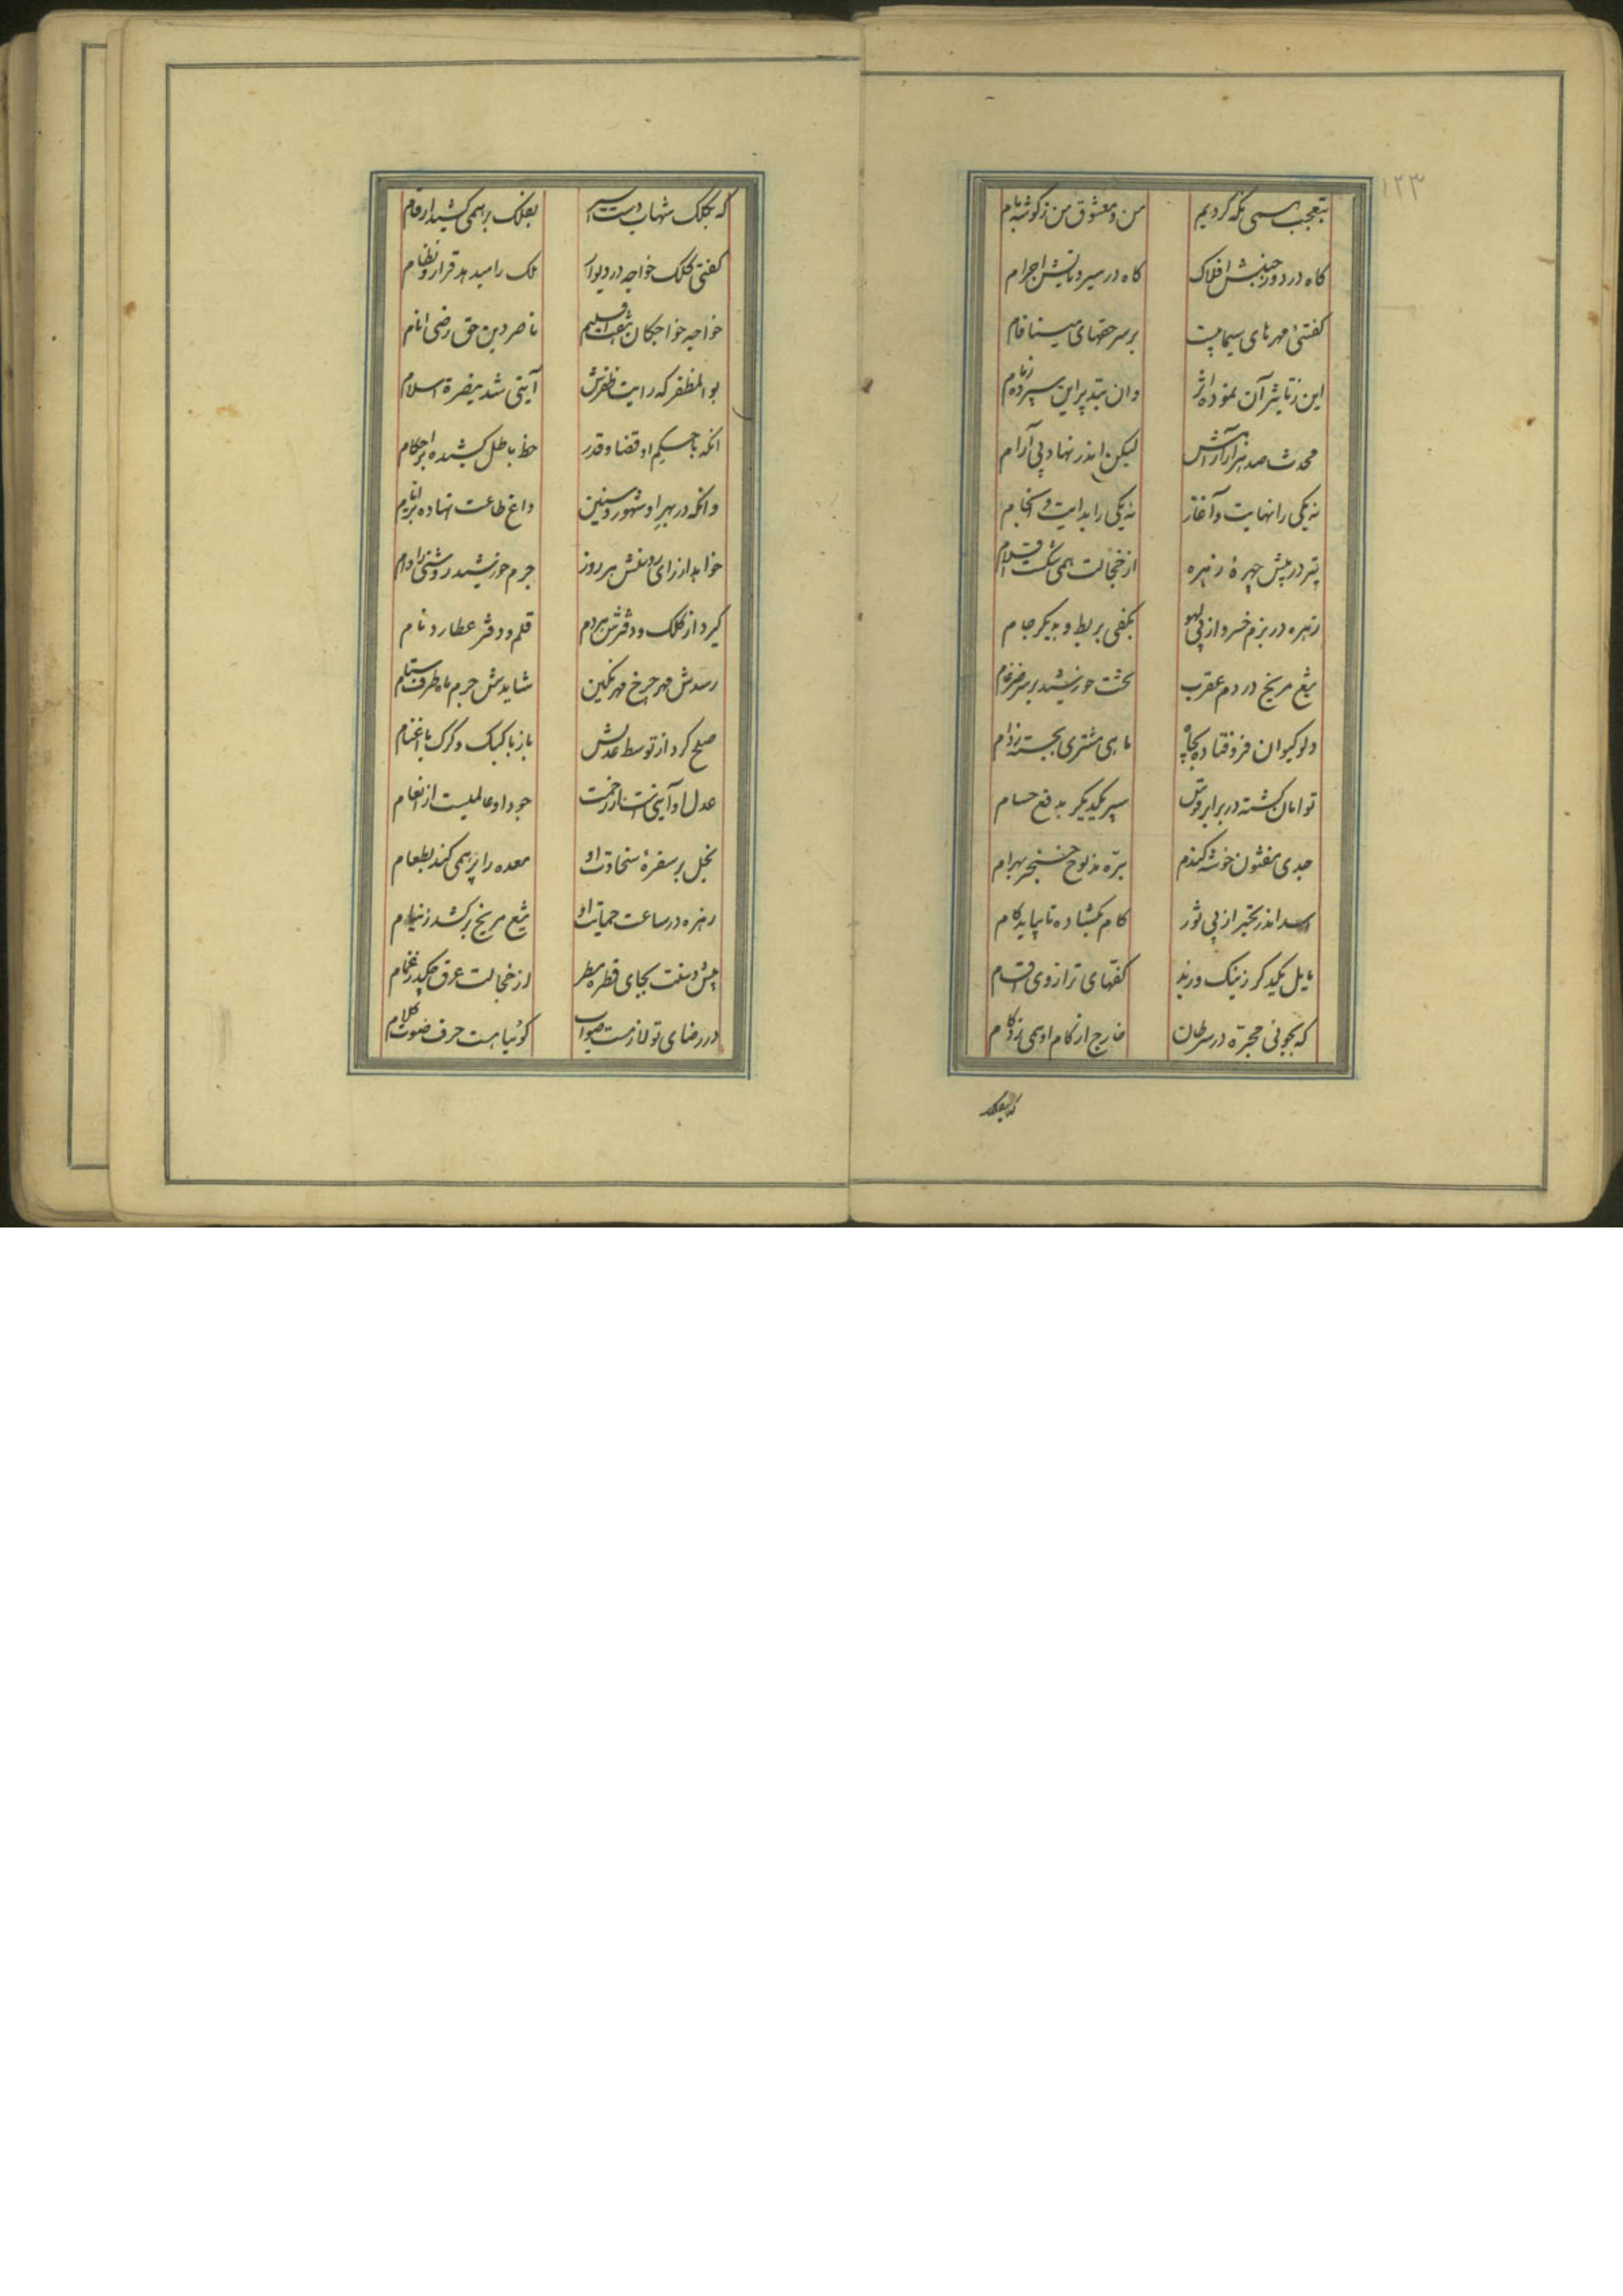 ۱۲۳
بتعجب همی نگه کردیم من و معشوق من ز گوشه بام
گاه در دور جنبش افلاک گاه در سیر و تابش اجرام
گفتی مهرهای سیمابیست بر سر حقهای مینا فام
این ز تاثیر آن نموده اثر وان بتدبیر این سپرده زمام
محدث صد هزار آرامش لیکن اندر نهاد بی آرام
نه یکی را نهایت و آغاز نه یکی را بدایت و انجام
تیر در پیش چهره زهره از خجالت همی شکست اقلام
زهره در بزم خسرو از پی لهو بکفی بربط و بدیگر جام
تیغ مریخ در دم عقرب تخت خورشید بر سر ضرغام
دلو کیوان فرو فتاده بچاه ماهی مشتری بجسته ز دام
توامان گشته در برابر قوس سپر یکدیگر بدفع حسام
جدی مفتون خوشه گندم بره مذبوح خنجر بهرام
اسد اندر تحیر از پی ثور کام بگشاده تا بیابد کام
مایل یکدگر ز نیک و ز بد کفهای ترازوی اقسام
که بجوئی مجره در سرطان خارج از گام او همی زد گام
که بکلک شهاب دست اثیر بفلک بر همی کشید ارقام
گفتی کلک خواجه در دیوان ملک را میدهد قرار و نظام
خواجه خواجگان هفت اقلیم ناصر دین حق رضی انام
بوالمظفر که رایت ظفرش آیتی شد بنصرة اسلام
آنکه با حکم او قضا و قدر خط باطل کشیده بر احکام
وانکه در بهر او شهور و سنین داغ طاعت نهاده بر ایام
خواهد از رای روشنش هر روز جرم خورشید روشنی را وام
گیرد از کلک و دفترش هر دم قلم و دفتر عطارد نام
رسدش مهر چرخ مهر نگین شایدش جرم ماه طرف ستام
صلح کرد از توسط عدلش باز با کبک و گرگ با اغنام
عدل او آیتیست از رحمت جود او عالمیست از انعام
بخل بر سفره سخاوت او معده را پر همی کند بطعام
زهره در ساعت حمایت او تیغ مریخ برکشد ز نیام
پیش دستت بجای قطره مطر از خجالت عرق چکد ز غمام
در رضای تو لازمست صواب گوئیا هست حرف و صوت کلام